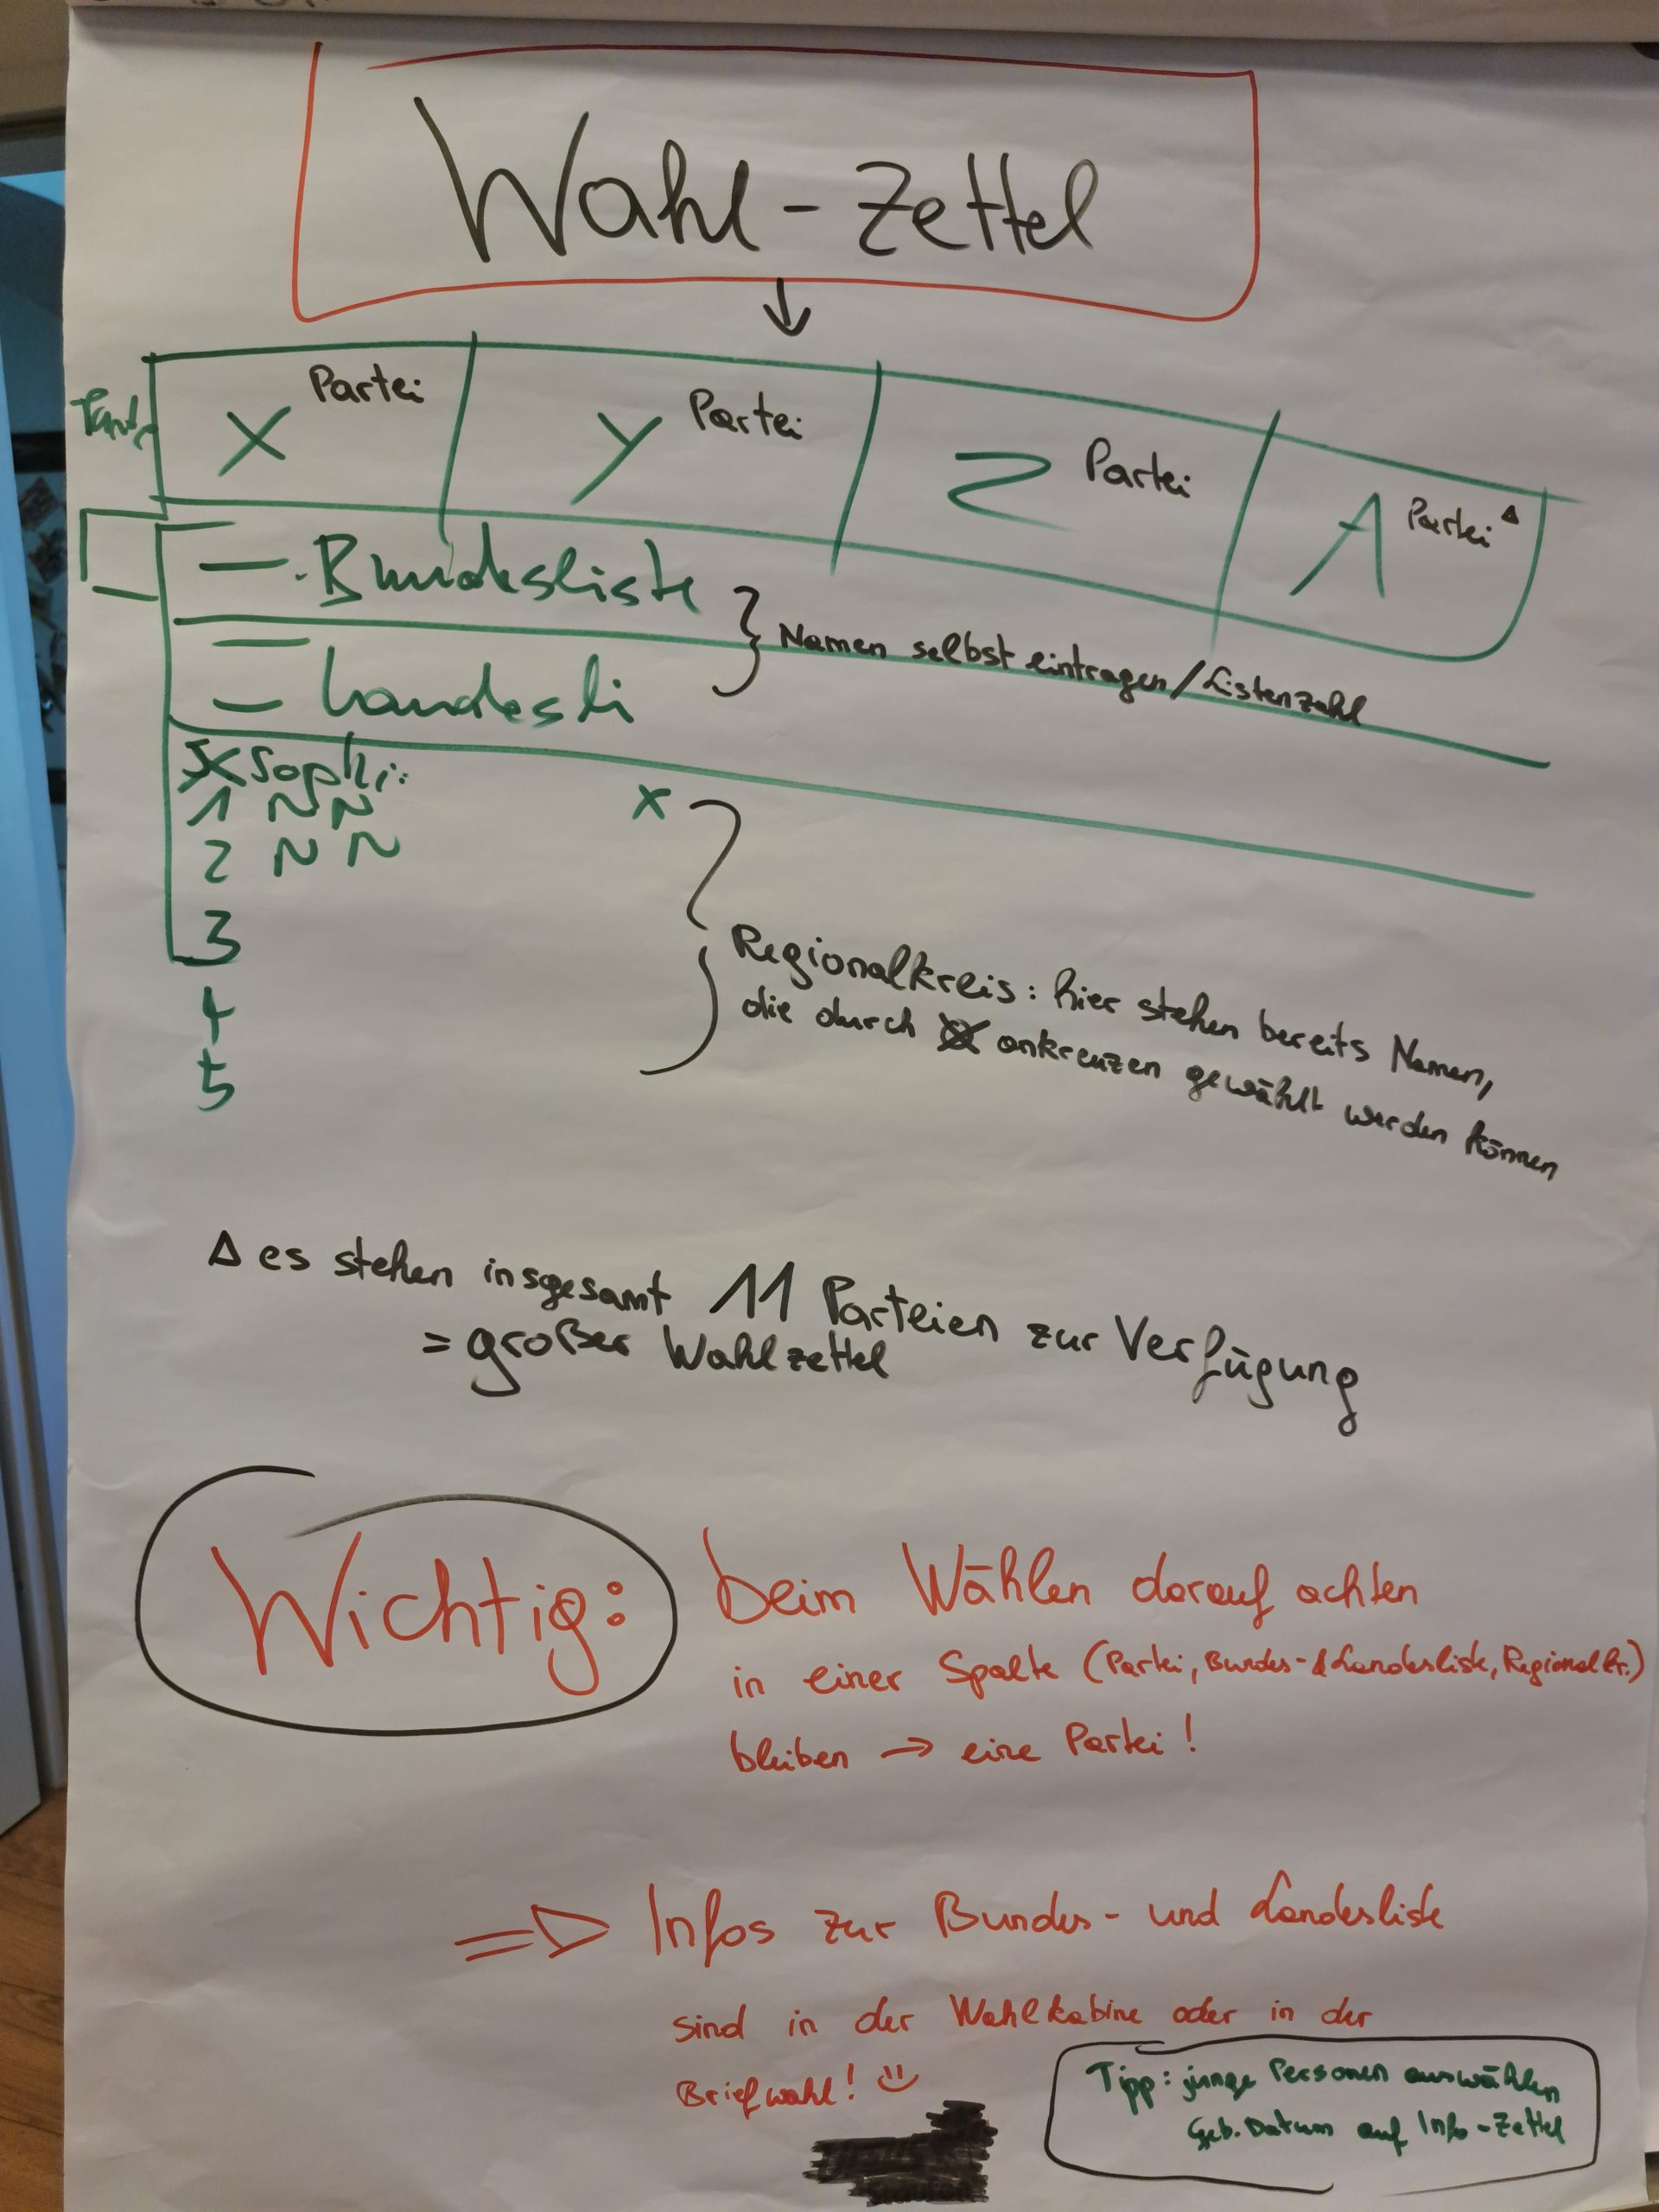 Wahl-Zettel
↓
Partei Partei Partei Partei Δ
X Y Z A
- Bundesliste
} Namen selbst eintragen/Listenzahl
- Landesli
Sophi:
1 N N X
2 N N
3
4
5
Regionalkreis: hier stehen bereits Namen,
die durch ankreuzen gewählt werden können
Δ es stehen insgesamt 11 Parteien zur Verfügung
= großer Wahlzettel
Wichtig: beim Wählen darauf achten
in einer Spalte (Partei, Bundes- & Landesliste, Regionalkr.)
bleiben → eine Partei!
⇒ Infos zur Bundes- und Landesliste
sind in der Wahlkabine oder in der
Briefwahl! :)
Tipp: junge Personen auswählen
Geb. Datum auf Info-Zettel